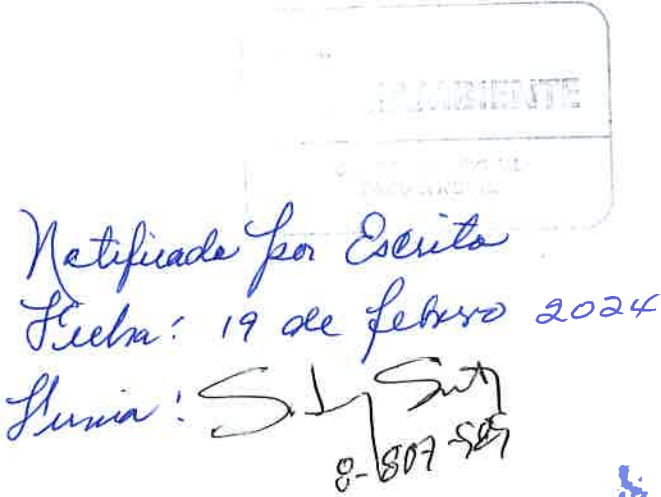 Notificado por Escrito
Fecha: 19 de febrero 2024
Firma:
8-807-585